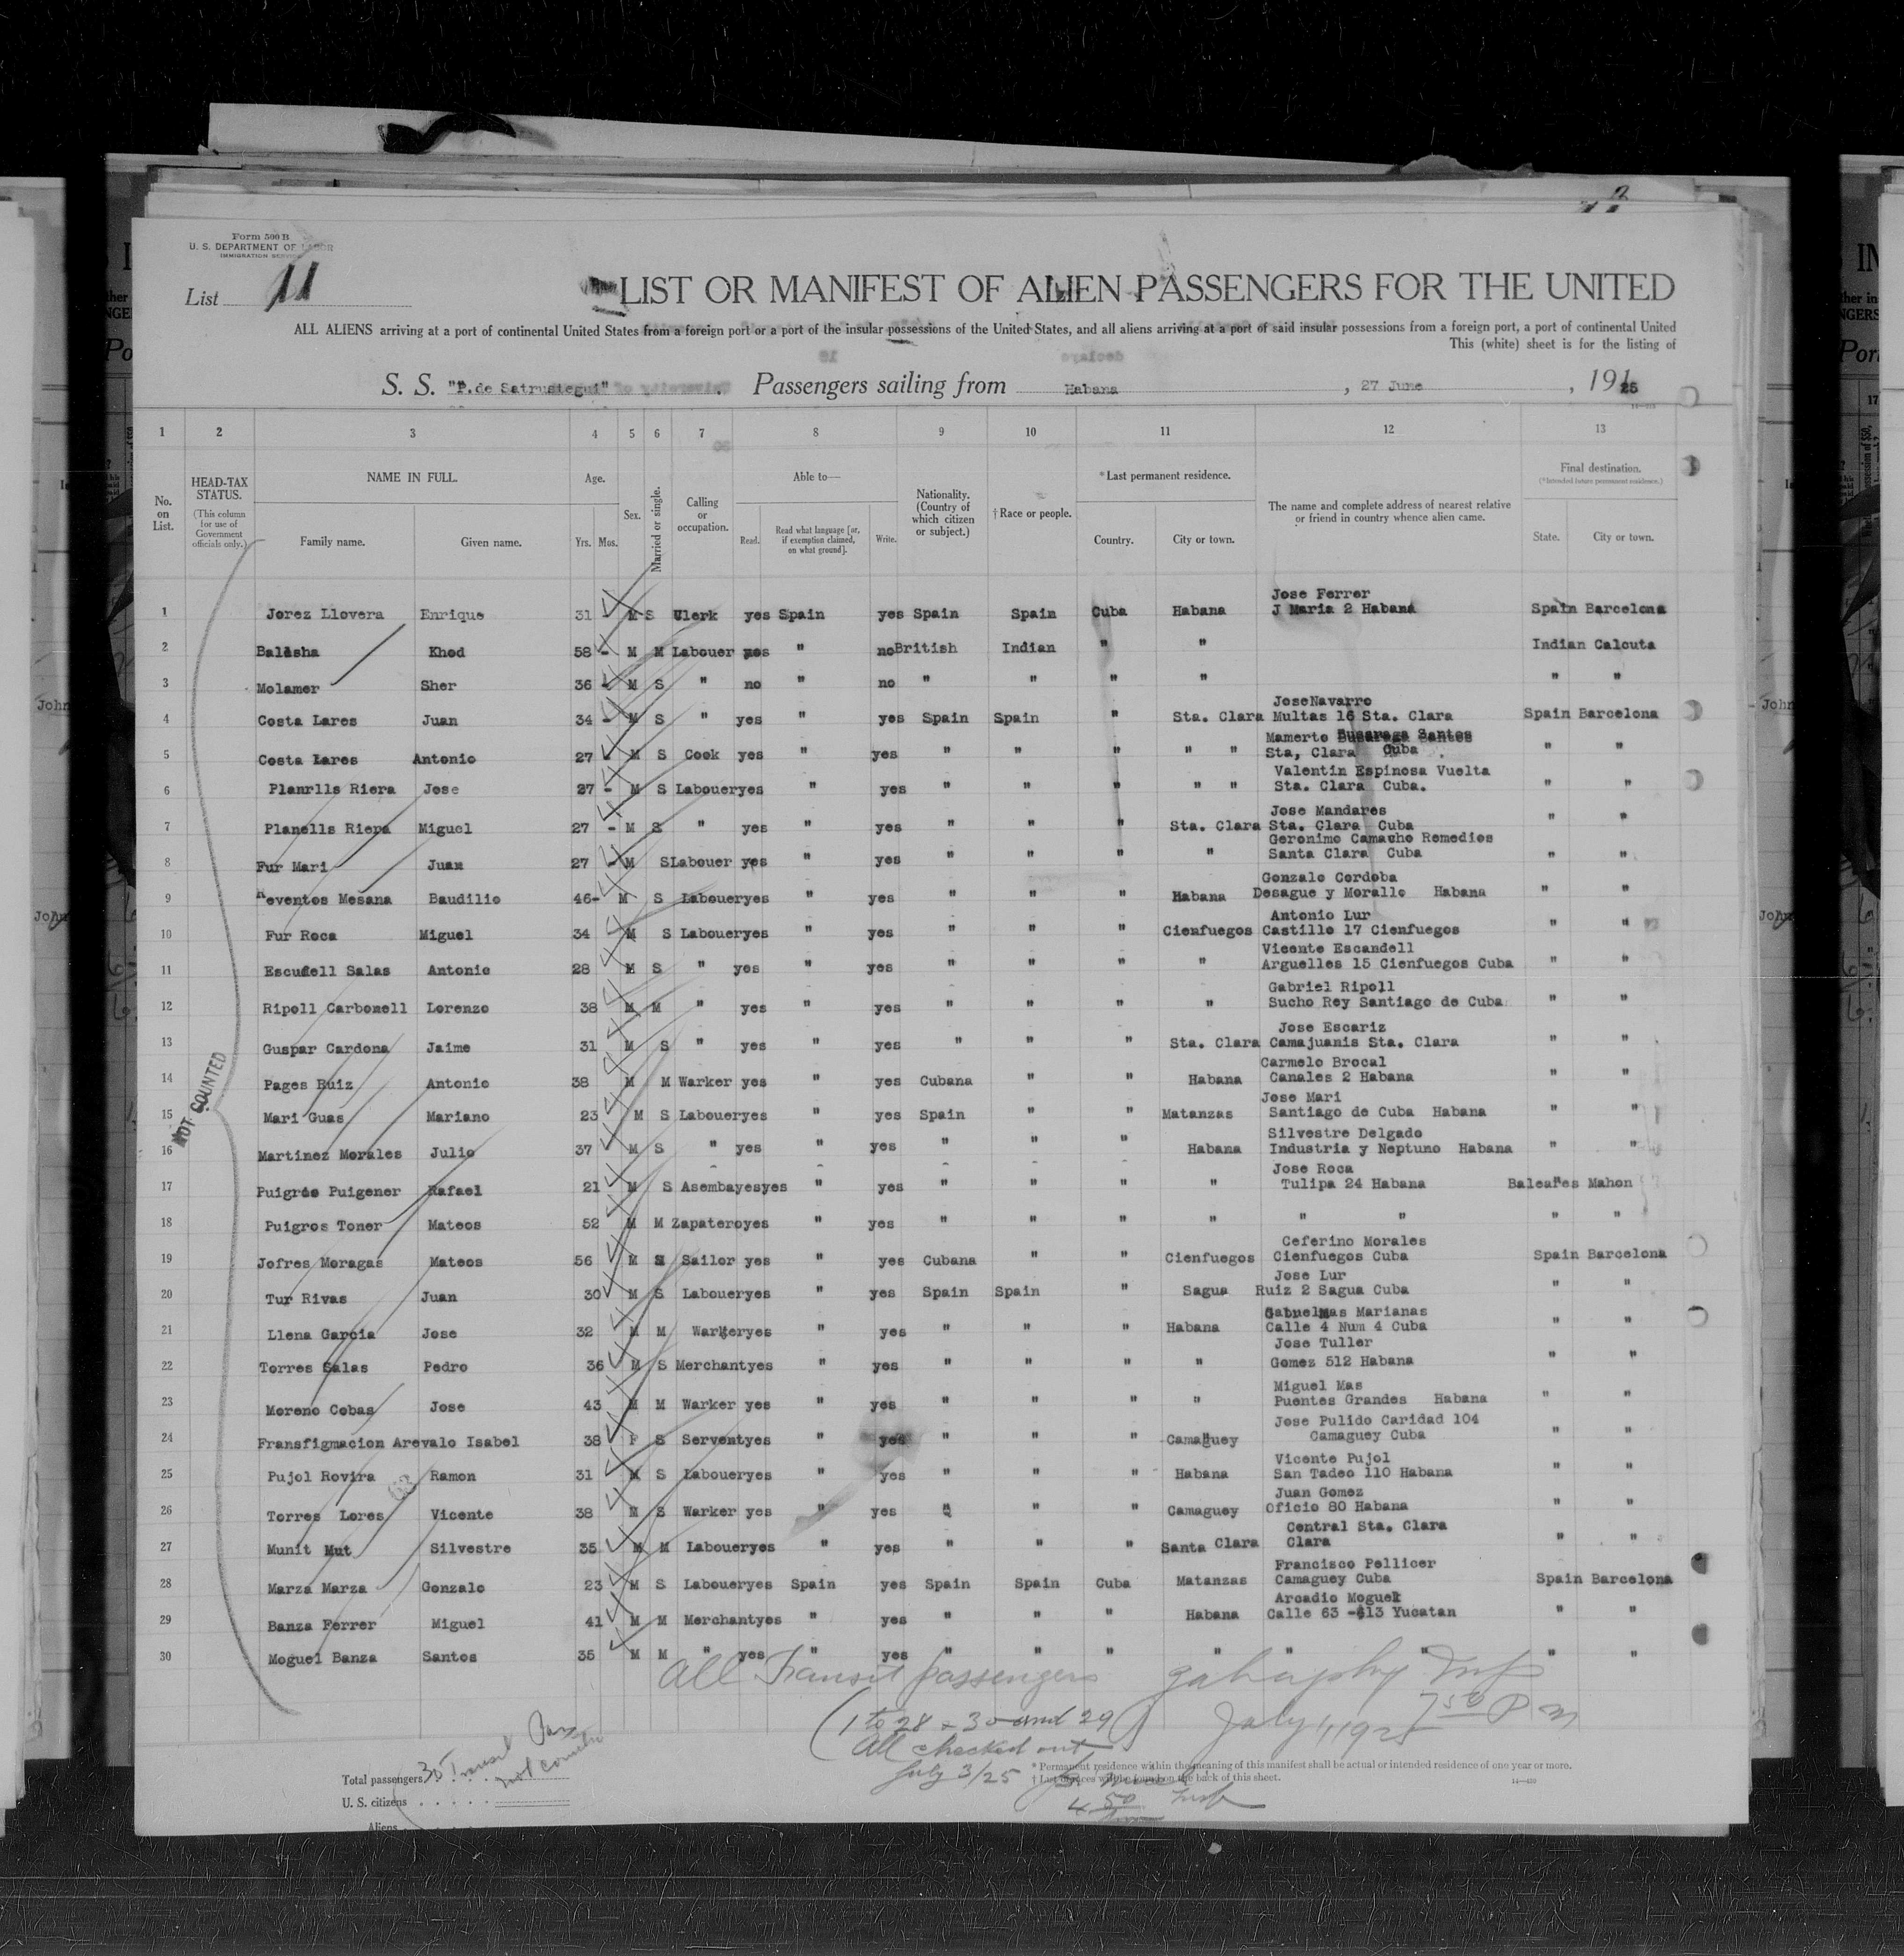 Form 500 B
U. S. DEPARTMENT OF LABOR
IMMIGRATION SERVICE
List 11
LIST OR MANIFEST OF ALIEN PASSENGERS FOR THE UNITED
ALL ALIENS arriving at a port of continental United States from a foreign port or a port of the insular possessions of the United States, and all aliens arriving at a port of said insular possessions from a foreign port, a port of continental United
This (white) sheet is for the listing of
S. S. "P.de Satrustegui" Passengers sailing from Habana , 27 June , 1925
1 2 3 4 5 6 7 8 9 10 11 12 13
No. on List.
HEAD-TAX STATUS.
(This column for use of Government officials only.)
NAME IN FULL.
Family name. Given name.
Age.
Yrs. Mos.
Sex.
Married or single.
Calling or occupation.
Able to—
Read. Read what language [or, if exemption claimed, on what ground]. Write.
Nationality. (Country of which citizen or subject.)
†Race or people.
*Last permanent residence.
Country. City or town.
The name and complete address of nearest relative or friend in country whence alien came.
Final destination.
(*Intended future permanent residence.)
State. City or town.
Jose Ferrer
1 Jorez Llovera Enrique 31 M S Clerk yes Spain yes Spain Spain Cuba Habana J Maria 2 Habana Spain Barcelona
2 Balesha Khod 58 - M M Labouer " no British Indian " " Indian Calcuta
3 Molamer Sher 36 - M S " no " no " " " " " "
JoseNavarro
4 Costa Lares Juan 34 - M S " yes " yes Spain Spain " Sta. Clara Multas 16 Sta. Clara Spain Barcelona
Mamerto Santos
5 Costa Lares Antonio 27 M S Cook yes " yes " " " " " Sta, Clara Cuba " "
Valentin Espinosa Vuelta
6 Planrlls Riera Jose 27 - M S Labouer yes " yes " " " " " Sta. Clara Cuba. " "
Jose Mandares
7 Planells Riera Miguel 27 - M S " yes " yes " " " Sta. Clara Sta. Clara Cuba " "
Geronimo Camacho Remedios
8 Fur Mari Juan 27 - M S Labouer yes " yes " " " " Santa Clara Cuba " "
Gonzalo Cordoba
9 Reventos Mesana Baudilio 46- M S Labouer yes " yes " " " Habana Desague y Morallo Habana " "
Antonio Lur
10 Fur Roca Miguel 34 M S Labouer yes " yes " " " Cienfuegos Castillo 17 Cienfuegos " "
Vicente Escandell
11 Escudell Salas Antonio 28 M S " yes " yes " " " " Arguelles 15 Cienfuegos Cuba " "
Gabriel Ripoll
12 Ripoll Carbonell Lorenzo 38 M M " yes " yes " " " " Sucho Rey Santiago de Cuba " "
Jose Escariz
13 Guspar Cardona Jaime 31 M S " yes " yes " " " Sta. Clara Camajuanis Sta. Clara " "
Carmelo Brocal
14 Pages Ruiz Antonio 38 M M Warker yes " yes Cubana " " Habana Canales 2 Habana " "
Jose Mari
15 Mari Guas Mariano 23 M S Labouer yes " yes Spain " " Matanzas Santiago de Cuba Habana " "
Silvestre Delgado
16 Martinez Morales Julio 37 M S " yes " yes " " " Habana Industria y Neptuno Habana " "
Jose Roca
17 Puigros Puigener Rafael 21 M S Asembayesyes " yes " " " " Tulipa 24 Habana Baleares Mahon
18 Puigros Toner Mateos 52 M M Zapatero yes " yes " " " " " " " "
Ceferino Morales
19 Jofres Moragas Mateos 56 M Sailor yes " yes Cubana " " Cienfuegos Cienfuegos Cuba Spain Barcelona
Jose Lur
20 Tur Rivas Juan 30 M S Labouer yes " yes Spain Spain " Sagua Ruiz 2 Sagua Cuba " "
Marianas
21 Llena Garcia Jose 32 M M Warker yes " yes " " " Habana Calle 4 Num 4 Cuba " "
Jose Tuller
22 Torres Salas Pedro 36 M S Merchant yes " yes " " " " Gomez 512 Habana " "
Miguel Mas
23 Moreno Cobas Jose 43 M M Warker yes " yes " " " " Puentes Grandes Habana " "
Jose Pulido Caridad 104
24 Fransfigmacion Arevalo Isabel 38 F S Servent yes " yes " " " Camaguey Camaguey Cuba " "
Vicente Pujol
25 Pujol Rovira Ramon 31 M S Labouer yes " yes " " " Habana San Tadeo 110 Habana " "
Juan Gomez
26 Torres Lores Vicente 38 M S Warker yes " yes " " " Camaguey Oficio 80 Habana " "
Central Sta. Clara
27 Munit Mut Silvestre 35 M M Labouer yes " yes " " " Santa Clara Clara " "
Francisco Pellicer
28 Marza Marza Gonzalo 23 M S Labouer yes Spain yes Spain Spain Cuba Matanzas Camaguey Cuba Spain Barcelona
Arcadio Moguel
29 Banza Ferrer Miguel 41 M M Merchant yes " yes " " " Habana Calle 63 -413 Yucatan " "
30 Moguel Banza Santos 35 M M " yes " yes " " " " " " " "
NOT COUNTED
All Transit passengers
(1 to 28 - 30 and 29)
All checked out
July 3/25
July 1, 1925 7 50 P m
4 50
Total passengers 30 Transit Pass
not counted
U. S. citizens
Aliens
* Permanent residence within the meaning of this manifest shall be actual or intended residence of one year or more.
† List of races will be found on the back of this sheet.